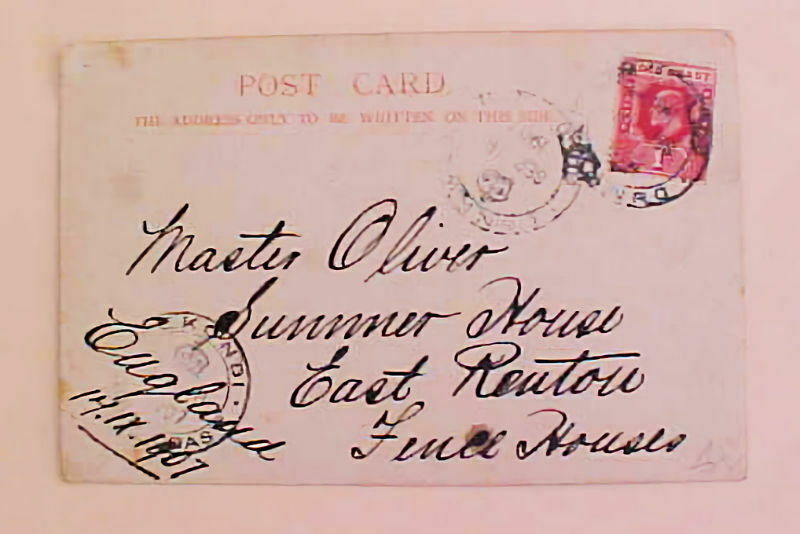 POST CARD
THE ADDRESS ONLY TO BE WRITTEN ON THIS SIDE
GOLD COAST
1D
Master Oliver
Summer House
East Renton
Fence Houses
England
17.IX.1907